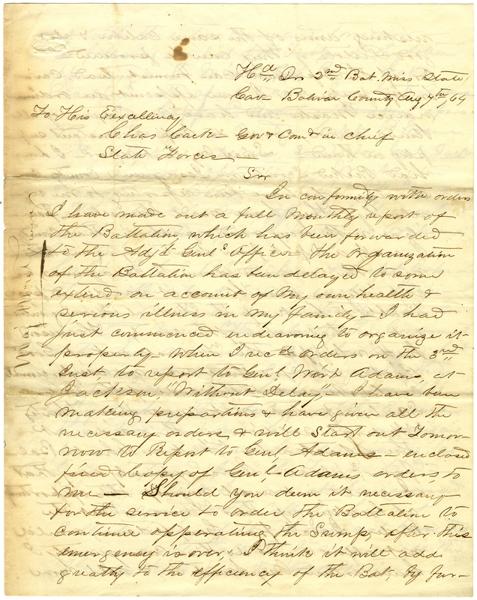 Hd Qrs 2nd Bat. Miss State
Cav Bolivar County Aug 7th/64
To His Excellency
Chas Clark – Gov & Com in Chief
State Forces –
Sir
In conformity with orders
I have made out a full Monthly report of
the Battalion, which has been forwarded
to the Adjt Genls Office – the organization
of the Battalion has been delayed to some
extend, on account of My own health &
serious illness in my family – I had
Just commenced endeavoring to organize it
properly when I recd orders on the 3rd
Inst to report to Genl Wirt Adams, at
Jackson, "Without Delay" – I have been
making prepartions & have given all the
necessary orders & will Start out Tomor-
row to Report to Genl Adams – enclosed
find Copy of Genl Adams orders to
me – Should you deem it necessary
for the service to order the Battalion to
continue opperating the Swamp, after this
emergency is over, I think it will add
greatly to the efficiency of the Bat, by fur-